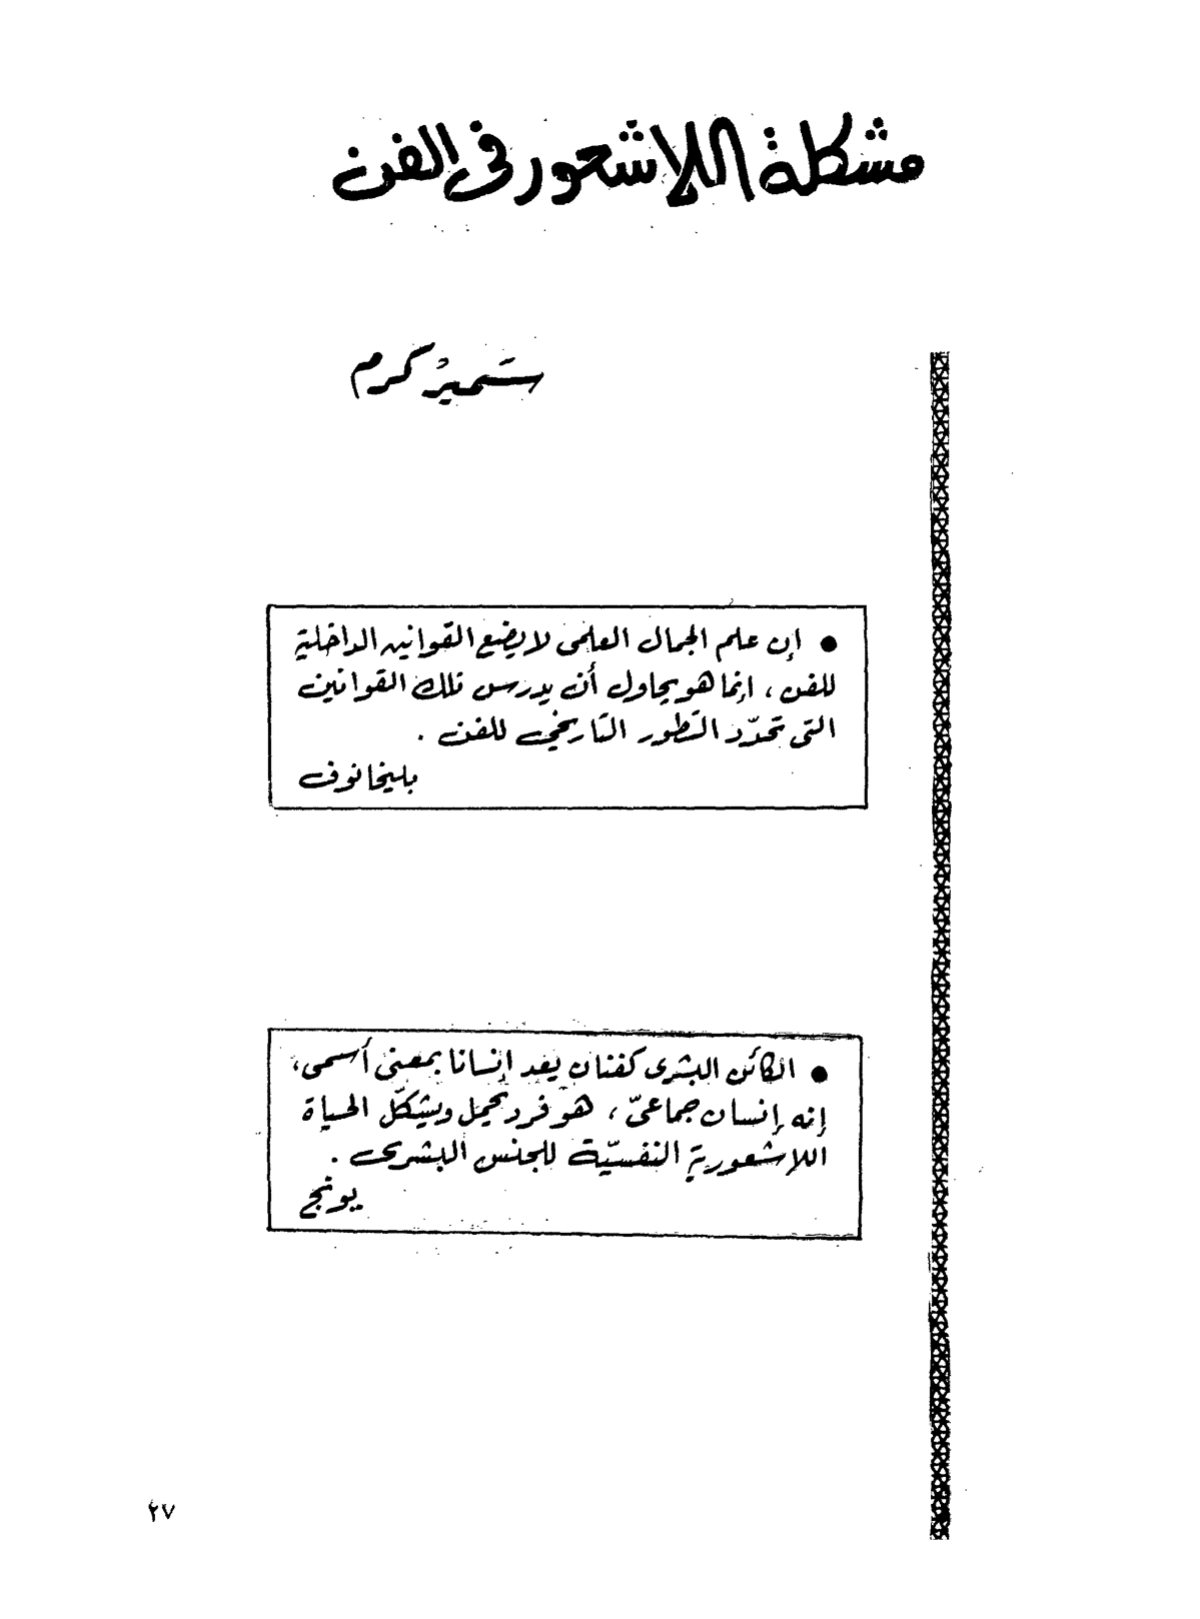 مشكلة اللاشعور في الفن
سَمير كرم
● إن علم الجمال العلمى لا يضع القوانين الداخلية
للفن ، إنما هو يحاول أن يدرس تلك القوانين
التى تحدّد التطور التاريخي للفن .
بليخانوف
● الكائن البشرى كفنان يعد إنسانا بمعنى أسمى ،
إنه إنسان جماعىّ ، هو فرد يحمل ويشكّل الحياة
اللاشعورية النفسيّة للجنس البشرى .
يونج
٢٧